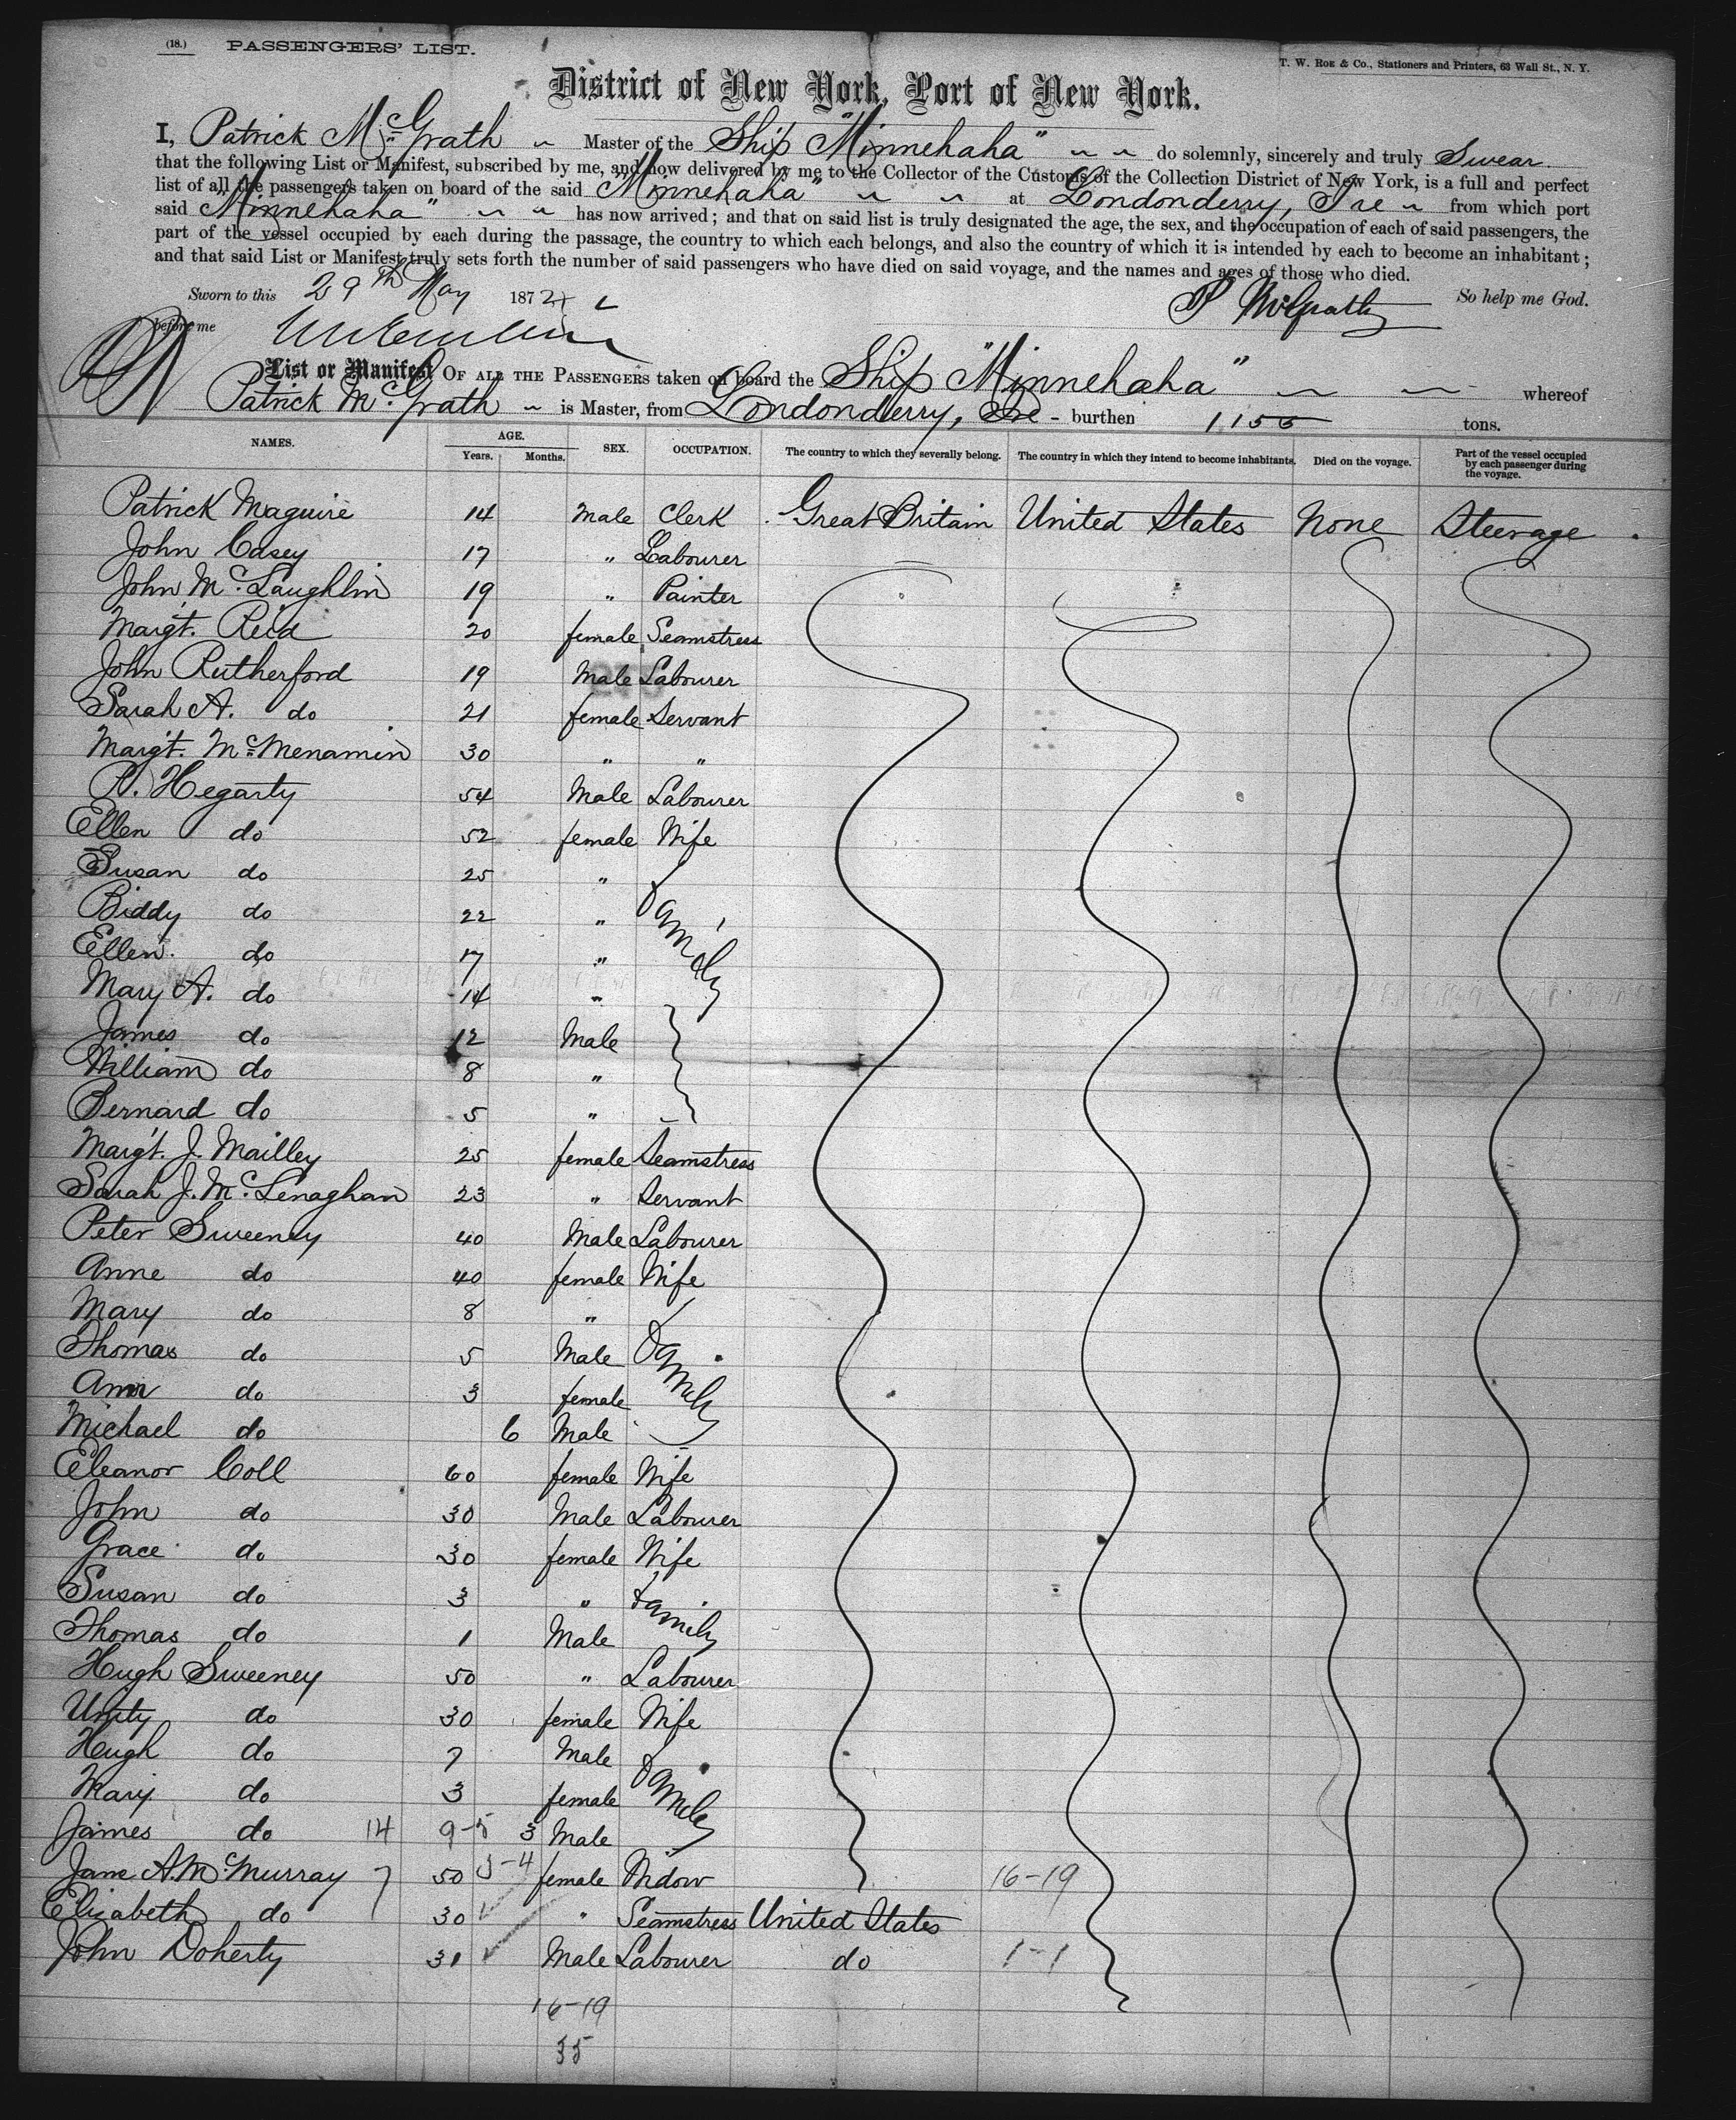 (18.) PASSENGERS' LIST.
T. W. Roe & Co., Stationers and Printers, 63 Wall St., N. Y.
District of New York, Port of New York.
I, Patrick McGrath Master of the Ship "Minnehaha" do solemnly, sincerely and truly Swear
that the following List or Manifest, subscribed by me, and now delivered by me to the Collector of the Customs of the Collection District of New York, is a full and perfect
list of all the passengers taken on board of the said "Minnehaha" at Londonderry, Ire from which port
said "Minnehaha" has now arrived; and that on said list is truly designated the age, the sex, and the occupation of each of said passengers, the
part of the vessel occupied by each during the passage, the country to which each belongs, and also the country of which it is intended by each to become an inhabitant;
and that said List or Manifest truly sets forth the number of said passengers who have died on said voyage, and the names and ages of those who died.
Sworn to this 29th May 1872 So help me God.
P McGrath
before me
List or Manifest OF ALL THE PASSENGERS taken on board the Ship "Minnehaha" whereof
Patrick McGrath is Master, from Londonderry, Ire - burthen 1156 tons.
NAMES. AGE. Years. Months. SEX. OCCUPATION. The country to which they severally belong. The country in which they intend to become inhabitants. Died on the voyage. Part of the vessel occupied by each passenger during the voyage.
Patrick Maguire 14 Male Clerk Great Britain United States None Steerage
John Casey 17 " Labourer
John McLaughlin 19 " Painter
Margt. Reid 20 female Seamstress
John Rutherford 19 Male Labourer
Sarah A. do 21 female Servant
Margt. McMenamin 30 " "
P. Hegarty 54 Male Labourer
Ellen do 52 female Wife
Susan do 25 "
Biddy do 22 " Family
Ellen do 17 "
Mary A. do 14 "
James do 12 Male
William do 8 "
Bernard do 5 "
Margt. J. Mailley 25 female Seamstress
Sarah J. McLenaghan 23 " Servant
Peter Sweeney 40 Male Labourer
Anne do 40 female Wife
Mary do 8 "
Thomas do 5 Male Family
Ann do 3 female
Michael do 6 Male
Eleanor Coll 60 female Wife
John do 30 Male Labourer
Grace do 30 female Wife
Susan do 3 " Family
Thomas do 1 Male
Hugh Sweeney 50 " Labourer
Unity do 30 female Wife
Hugh do 7 Male Family
Mary do 3 female
James do 14 9-5 3 Male
Jane A. McMurray 7 50 5-4 female Widow 16-19
Elizabeth do 30 " Seamstress United States
John Doherty 31 Male Labourer do 1-1
16-19
35